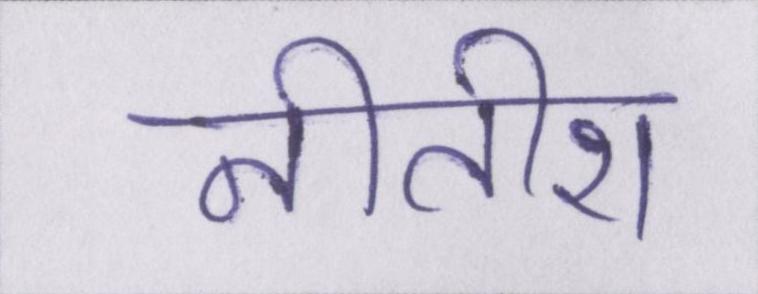 नीतीश